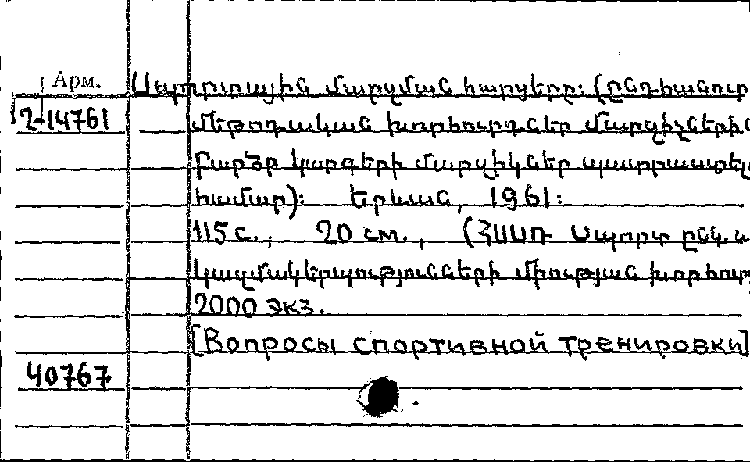 Арм. Սպորտային մարզման հարցերը։ (ընդհանուր
2-14761 մեթոդական խորհուրդներ մարզիչներին
բարձր կարգերի մարզիկներ պատրաստելու
համար)։ Երևան, 1961։
115 с., 20 см., (ՀՍՍՌ Սպորտ ընկ. և
կազմակերպությունների միության խորհուրդ
2000 экз.
[Вопросы спортивной тренировки]
40767